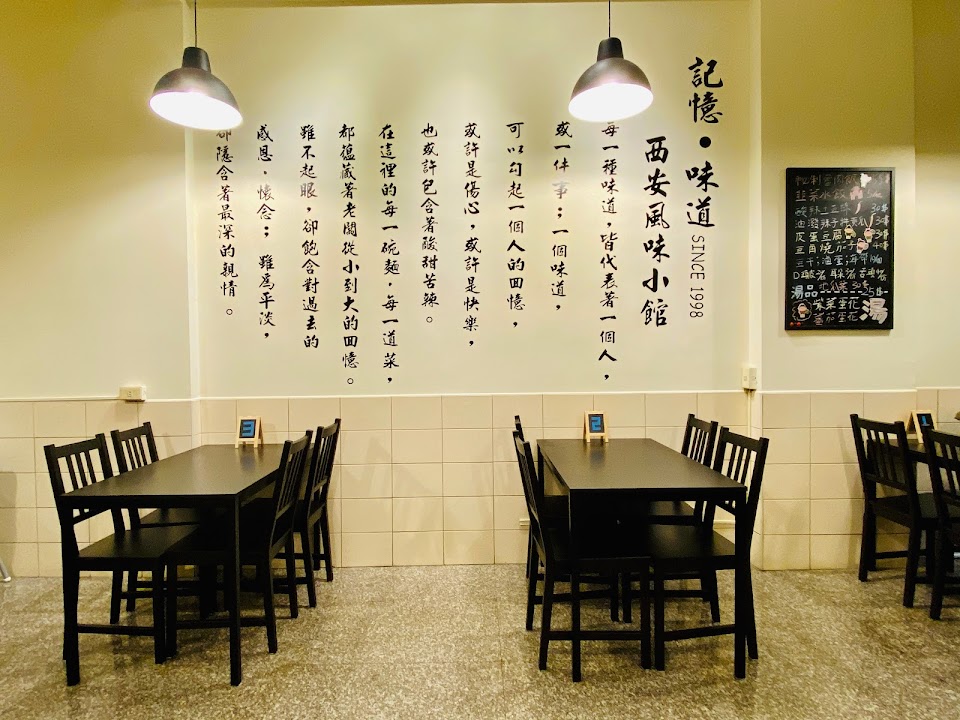 記憶•味道 SINCE 1998
西安風味小館
每一種味道,皆代表著一個人,
或一件事;一個味道,
可以勾起一個人的回憶,
或許是傷心,或許是快樂,
也或許包含著酸甜苦辣。
在這裡的每一碗麵,每一道菜,
都蘊藏著老闆從小到大的回憶。
雖不起眼,卻飽含對過去的
感恩.懷念; 雖為平淡,
卻隱含著最深的親情。
韭菜水餃
皮蛋豆腐
豆角燒茄子
湯品
紫菜蛋花
蕃茄蛋花
湯
3
2
1